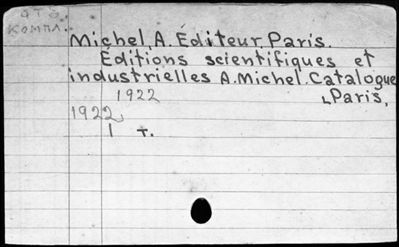 КОМПЛ.
Michel, A. Éditeur, Paris.
Éditions scientifiques et
industrielles A. Michel. Catalogue
1922
Paris,
1922
1 т.